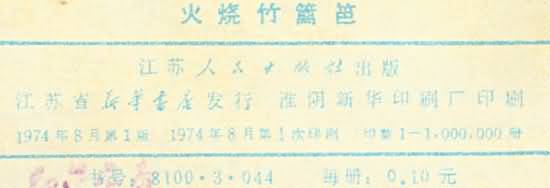 火烧竹篱笆
江苏人民出版社出版
江苏省新华书店发行 淮阴新华印刷厂印刷
1974年8月第1版 1974年8月第1次印刷 印数1—1,000,000册
书号：8100·3·044 每册：0.10元